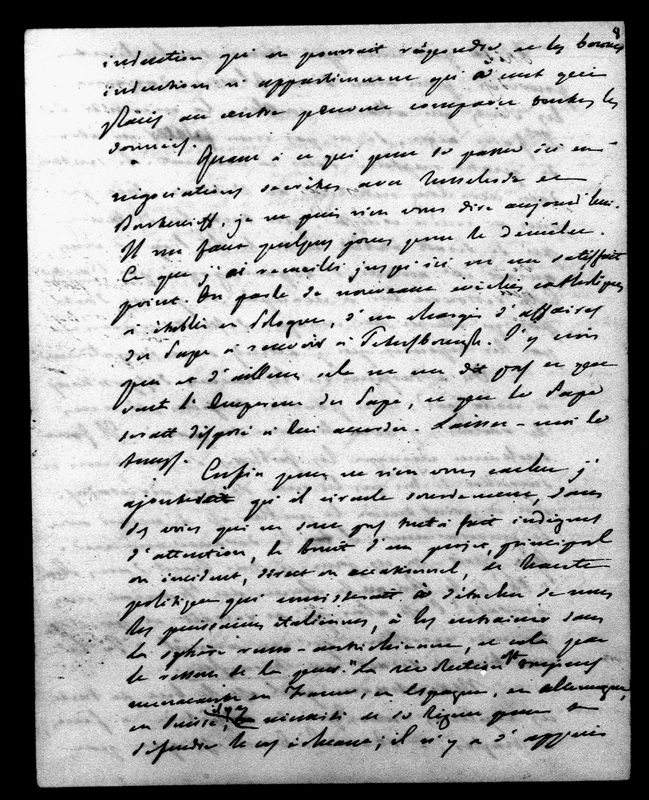 8
induction qui en pourrait répondre et les bonnes
inductions n'appartiennent qu'à
placés au centre peuvent comparer toutes les
données.
Quant à ce qui peut se passer ici en
négociations secrètes avec Nesselrode et
je ne puis rien vous dire aujourd'hui.
Il me faut quelques jours pour le démêler.
Ce que j'ai recueilli jusqu'ici ne me satisfait
point. On parle de nouveaux évêchés catholiques
à établir en Pologne, d'un chargé d'affaires
du Pape à recevoir à Pétersbourg. J'y crois
peu et d'ailleurs cela ne me dit pas ce que
veut l'Empereur du Pape, ce que le Pape
serait disposé à lui accorder. Laissez-moi le
temps.
Enfin pour ne rien vous cacher j'
ajouterai qu'il circule sourdement, dans
des voies qui ne sont pas tout à fait indignes
d'attention, le bruit d'un projet, principal
ou incident, direct ou occasionnel, de haute
politique qui consisterait à détacher de nous
les puissances italiennes, à les entraîner dans
la sphère russo-autrichienne, et cela par
le ressort de la peur. "La révolution est toujours
menaçante en France, en Espagne, en Allemagne,
en Suisse; il y a nécessité de se liguer pour se
défendre le cas échéant; il n'y a d'appuis